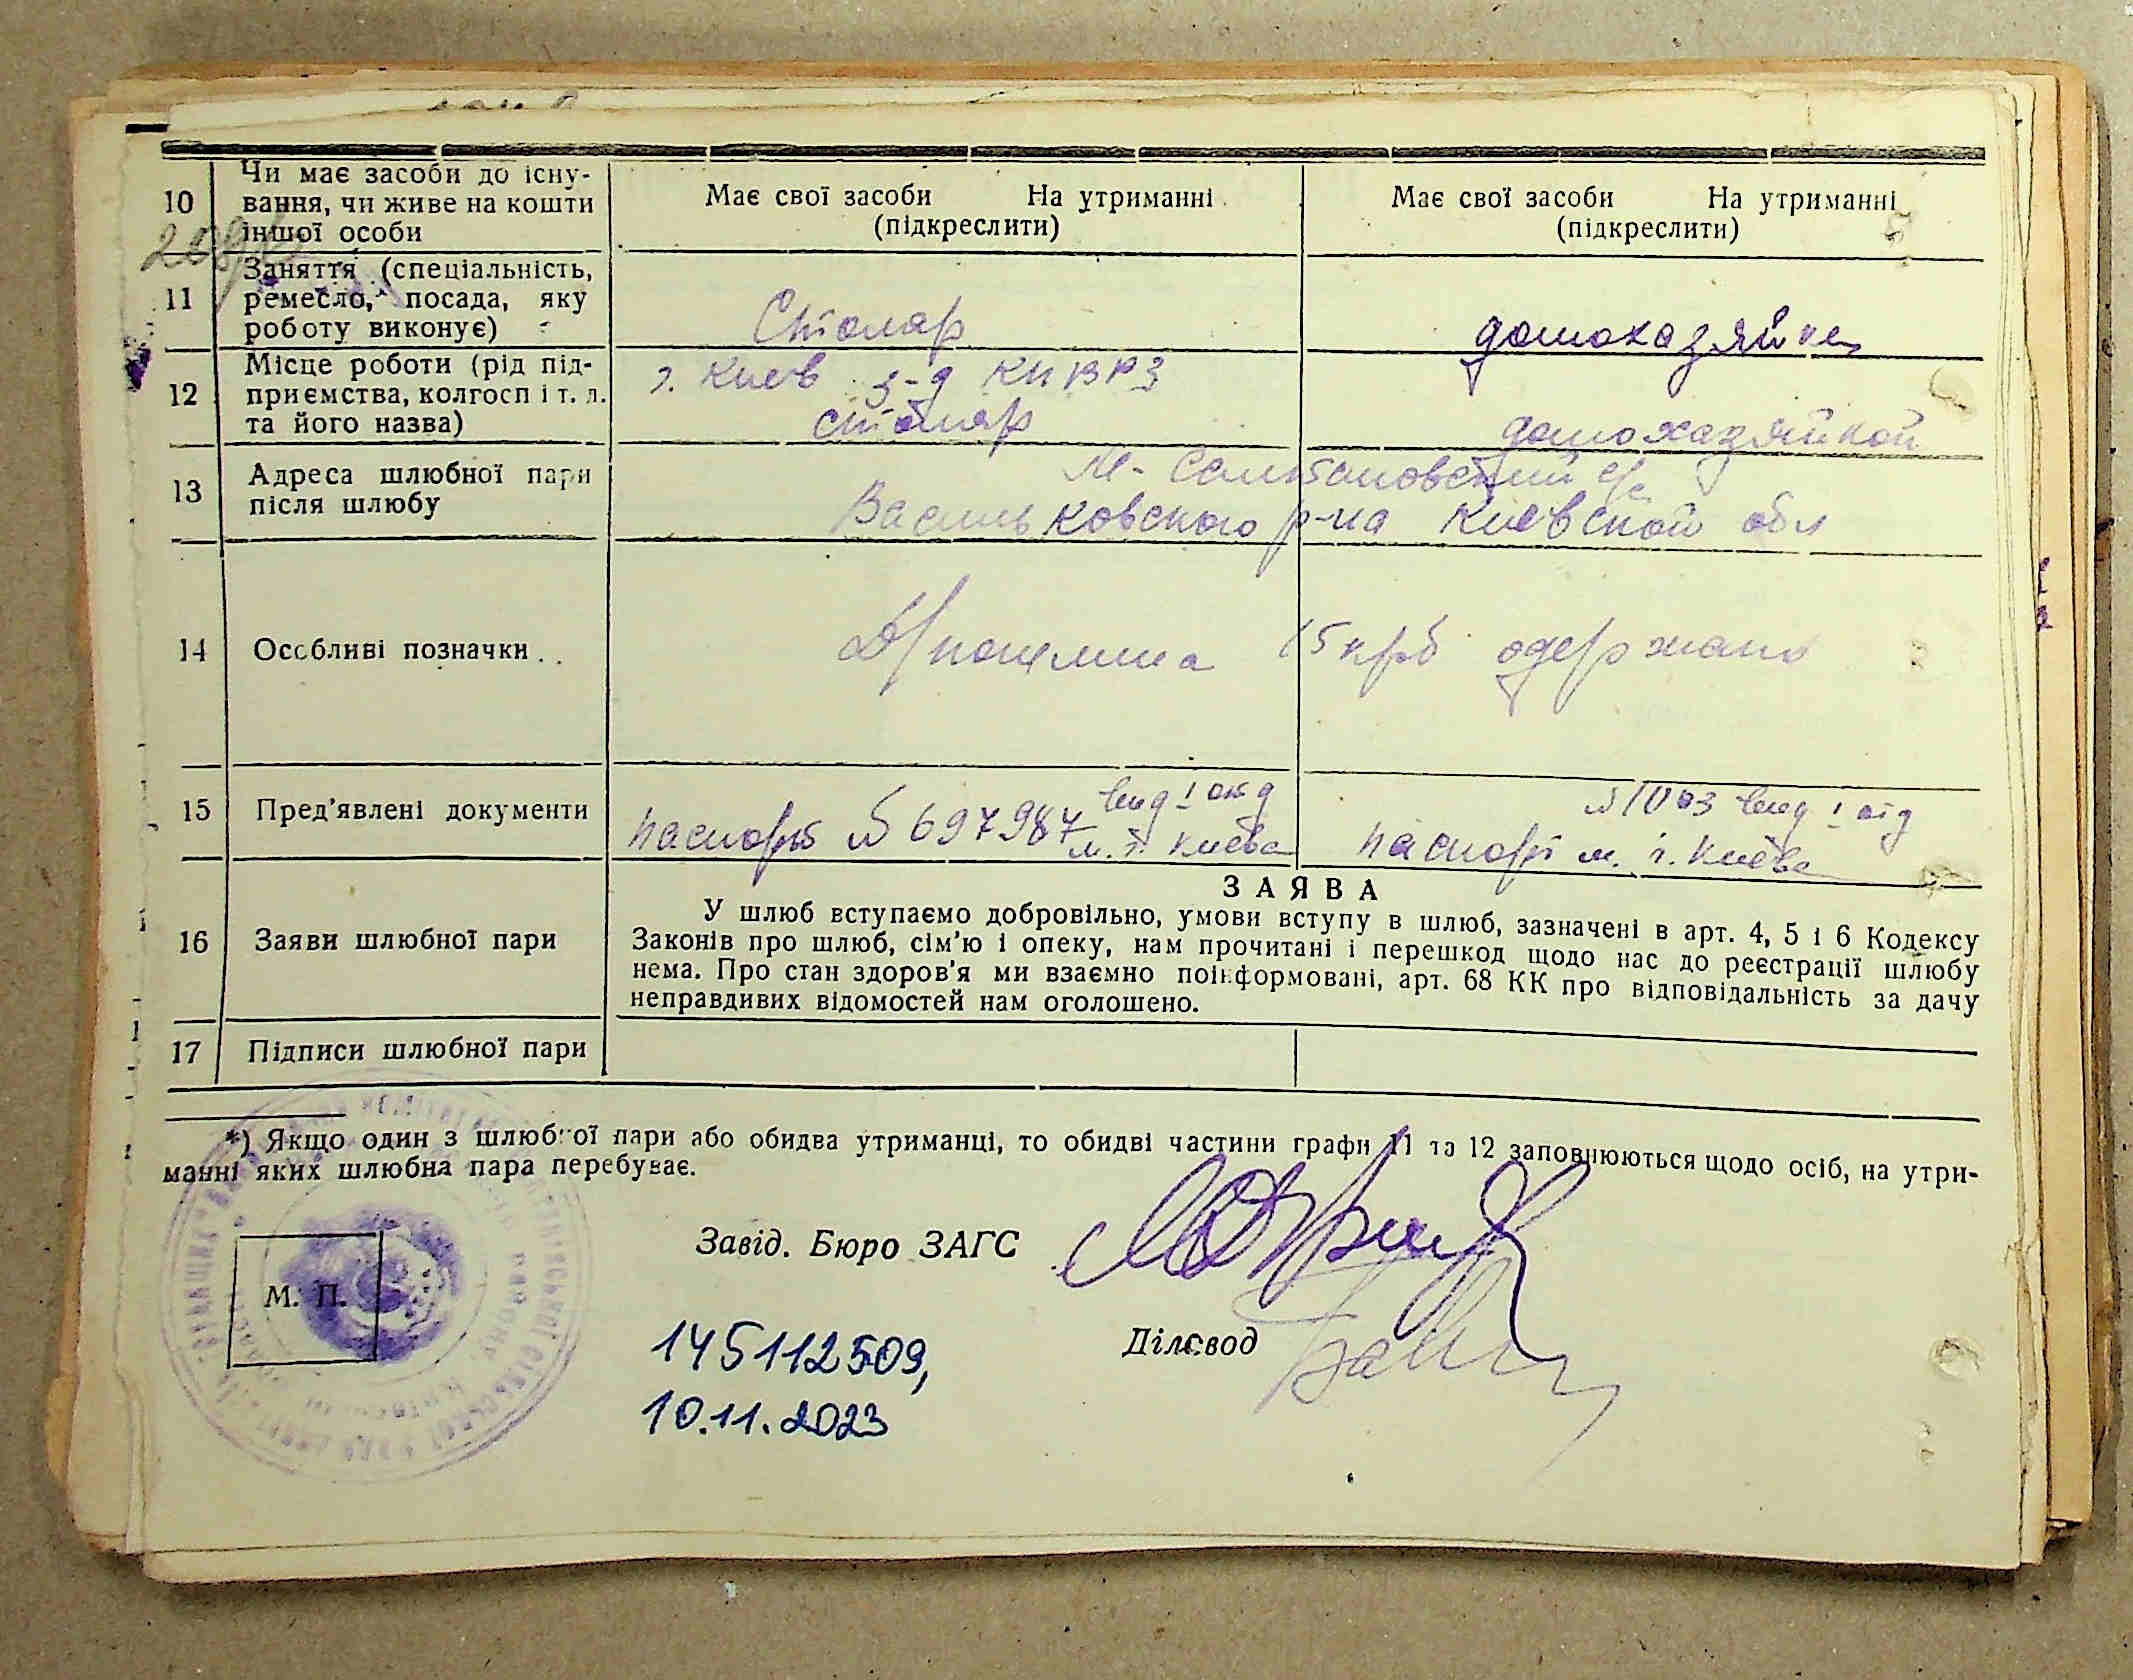 10
Чи має засоби до існу-
вання, чи живе на кошти
іншої особи
Має свої засоби На утриманні
(підкреслити)
Має свої засоби На утриманні
(підкреслити)
11
Заняття (спеціальність,
ремесло,* посада, яку
роботу виконує)
Столяр
домохазяйка
12
Місце роботи (рід під-
приємства, колгосп і т. п.
та його назва)
г. Киев з-д КИВРЗ
столяр
домохазяйкой
13
Адреса шлюбної пари
після шлюбу
М- Салтановский с/с
Васильковского р-на Киевской обл
14
Особливі позначки
Д/пошлина 15 крб одержано
15
Пред'явлені документи
паспорт № 697987 вид I отд
м. г. Києва
вид I отд
паспорт м. г. Києва
16
Заяви шлюбної пари
ЗАЯВА
У шлюб вступаємо добровільно, умови вступу в шлюб, зазначені в арт. 4, 5 і 6 Кодексу
Законів про шлюб, сім'ю і опеку, нам прочитані і перешкод щодо нас до реєстрації шлюбу
нема. Про стан здоров'я ми взаємно поінформовані, арт. 68 КК про відповідальність за дачу
неправдивих відомостей нам оголошено.
17
Підписи шлюбної пари
*) Якщо один з шлюбної пари або обидва утриманці, то обидві частини графи 11 та 12 заповнюються щодо осіб, на утри-
манні яких шлюбна пара перебуває.
Завід. Бюро ЗАГС
М. П.
Діловод
145112509,
10.11.2023